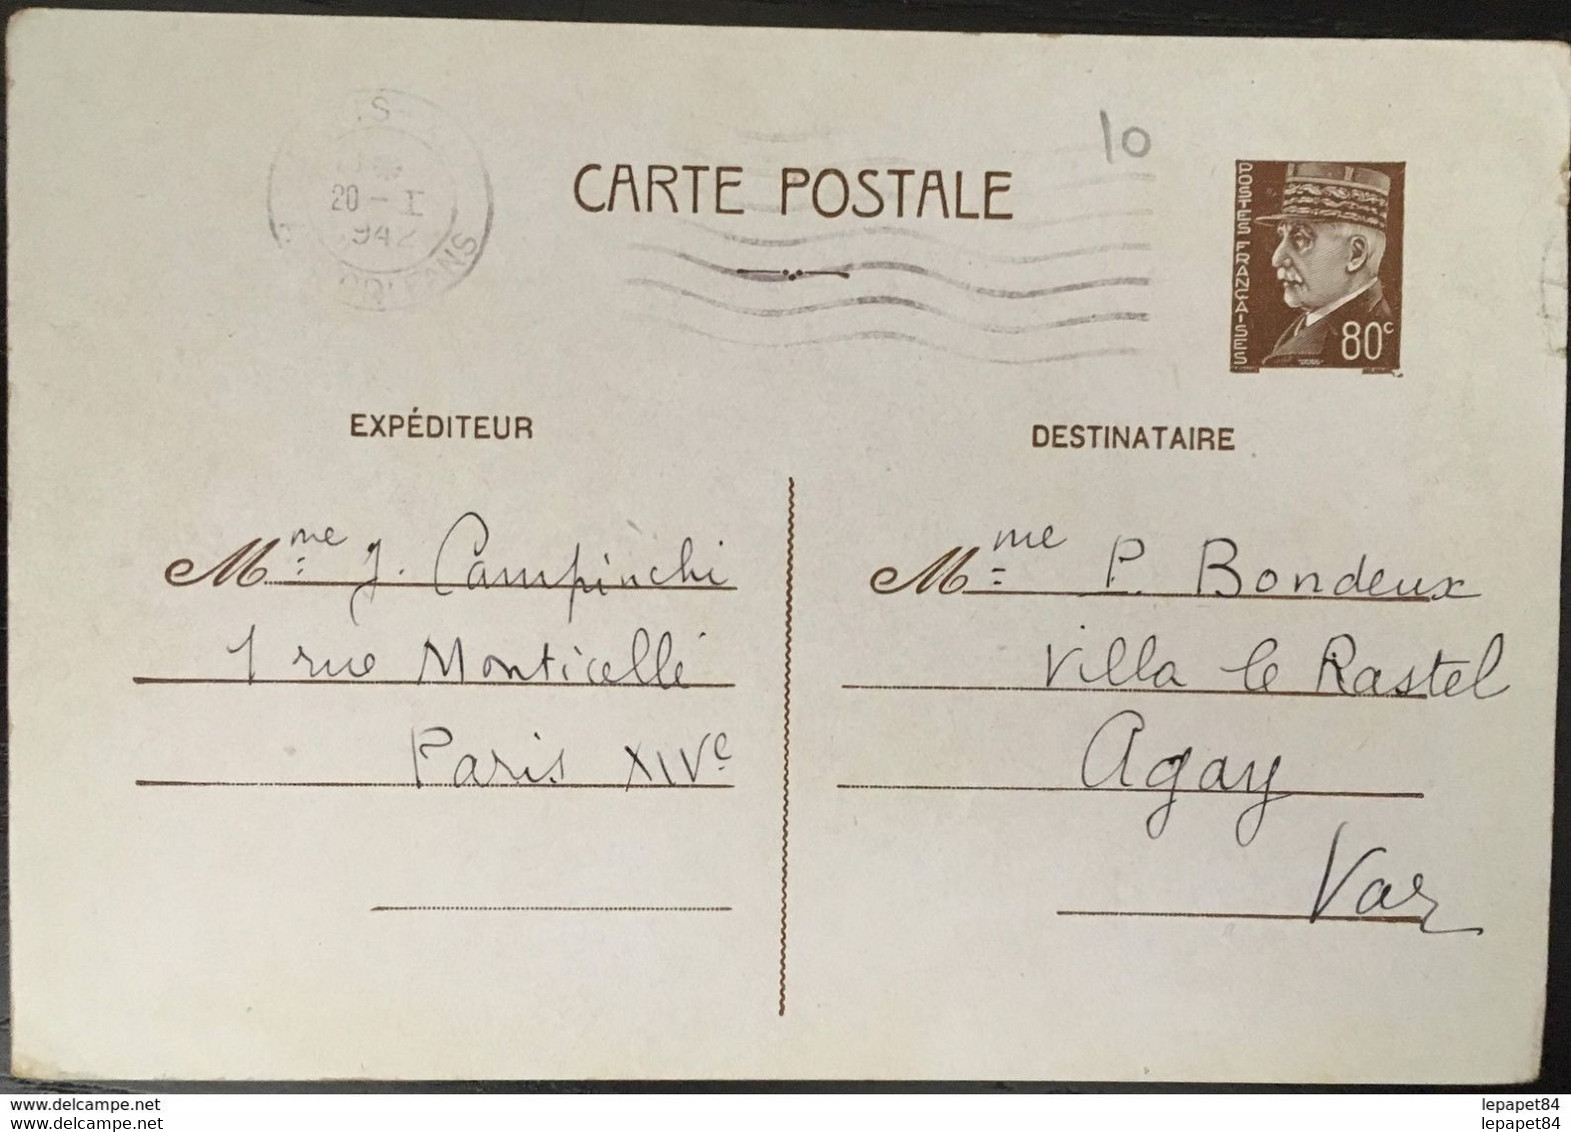 10
CARTE POSTALE
20 - I
1942
ORLEANS
POSTES FRANÇAISES
80c
EXPÉDITEUR
DESTINATAIRE
Mme J. Campinchi
1 rue Monticelli
Paris XIVe
Mme P. Bondeux
Villa le Rastel
Agay
Var
www.delcampe.net
www.delcampe.net
lepapet84
lepapet84